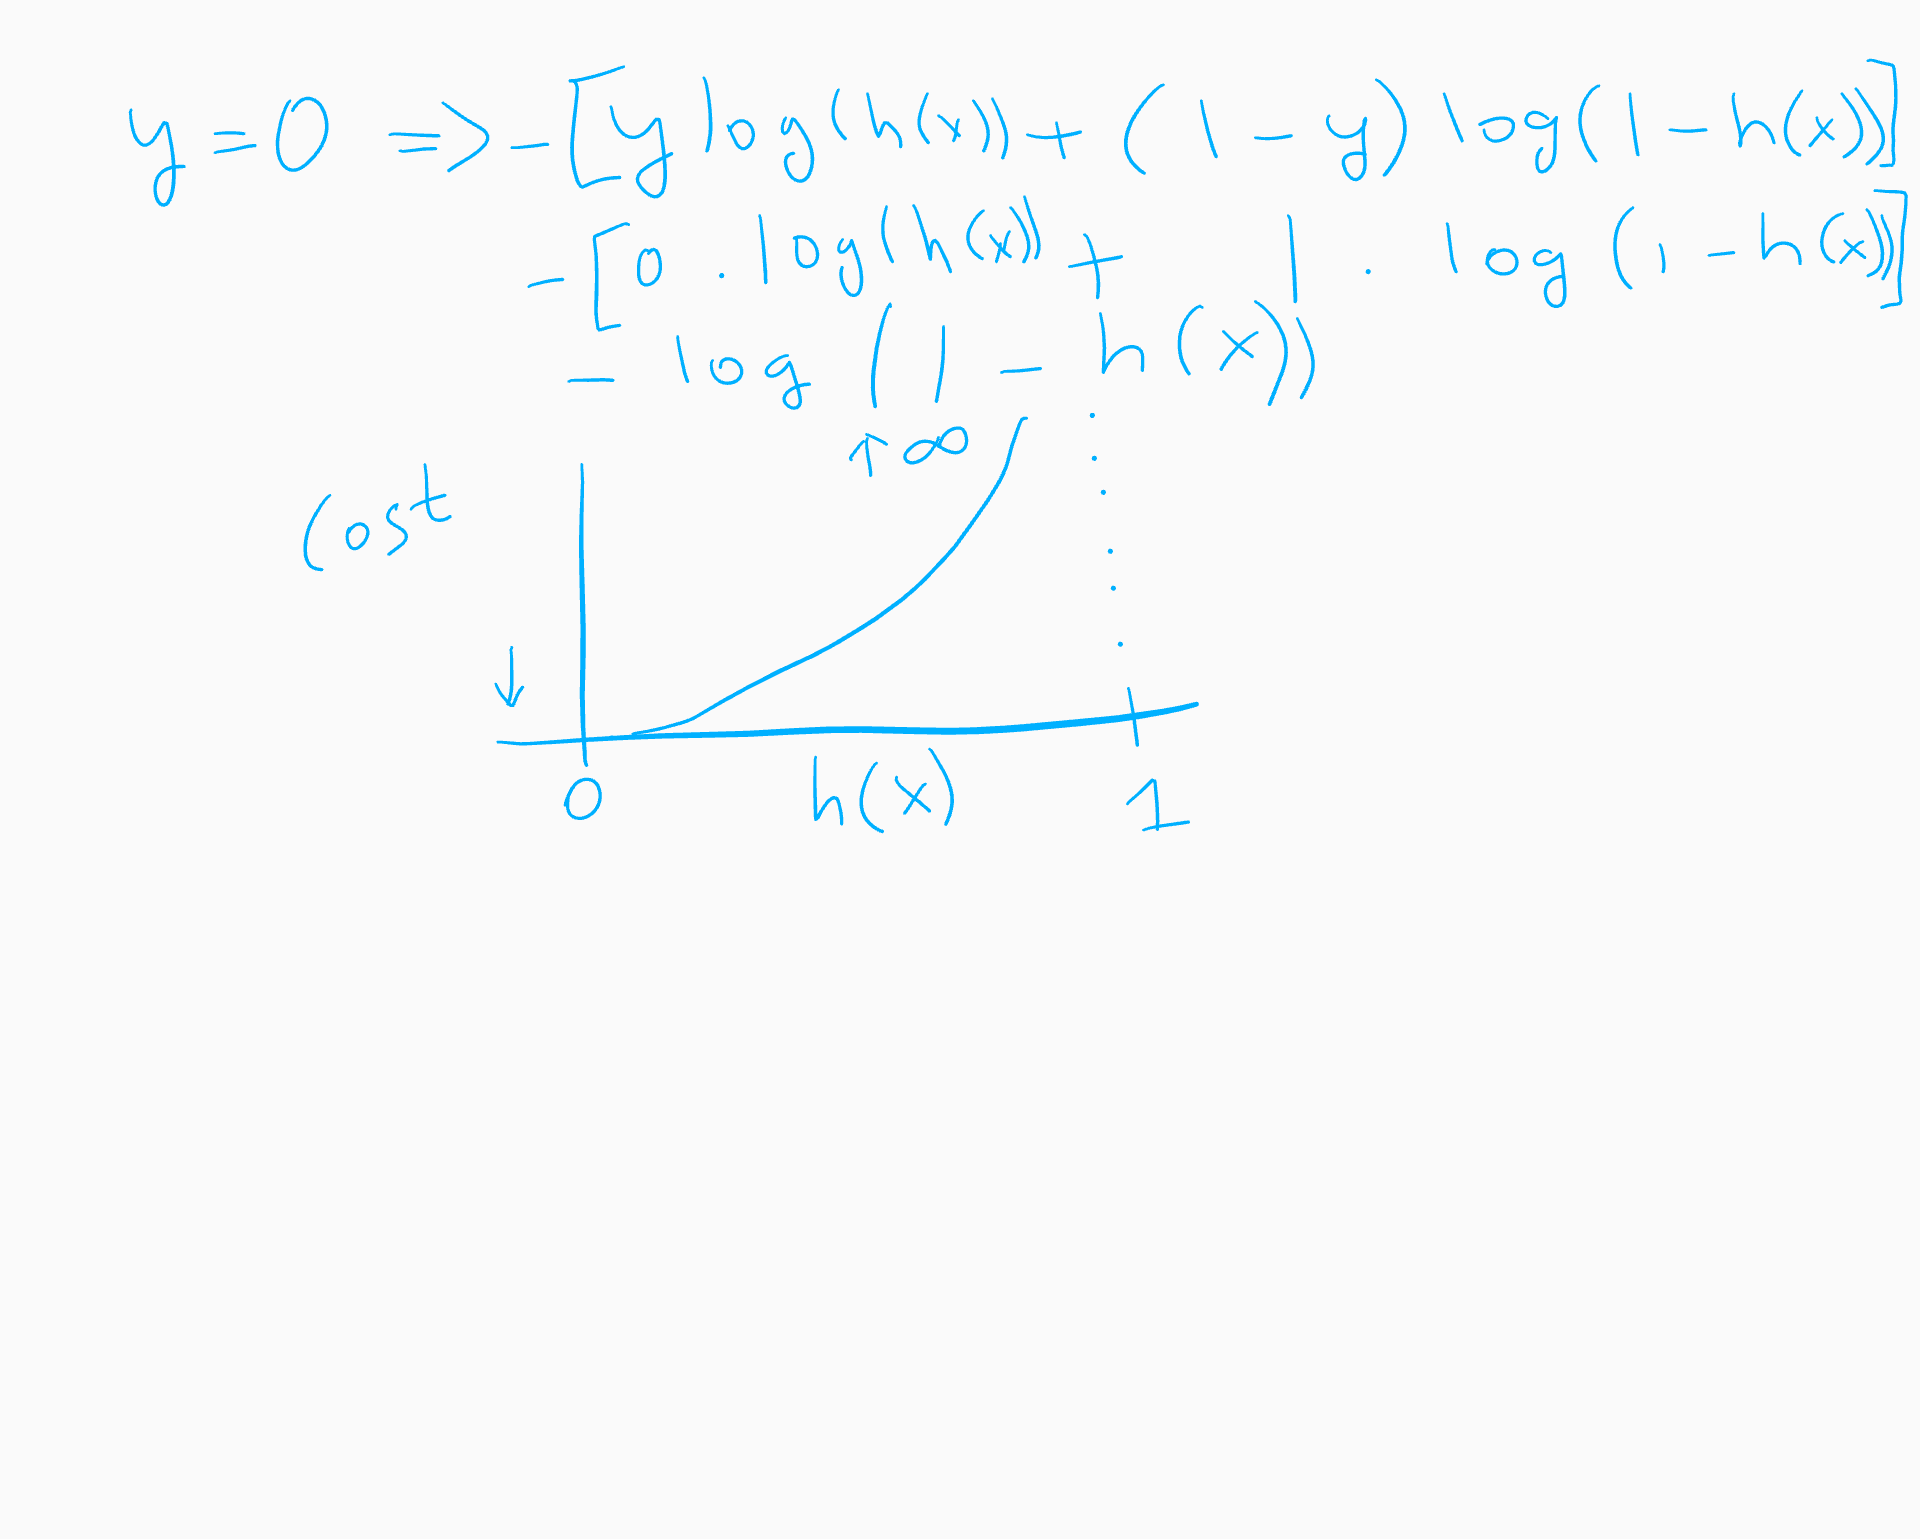 y = 0 => - [y log(h(x)) + (1 - y) log(1 - h(x))]
- [0 . log(h(x)) + 1 . log(1 - h(x))]
- log (1 - h(x))
↑ ∞
Cost
↓
0 h(x) 1